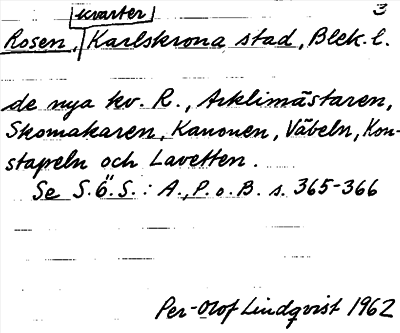 kvarter 3
Rosen, Karlskrona stad, Blek. l.
de nya kv. R., Arklimästaren,
Skomakaren, Kanonen, Väbeln, Kon-
stapeln och Lavetten.
Se S.Ö.S.: A., P. o. B. s. 365-366
Per-Olof Lindqvist 1962